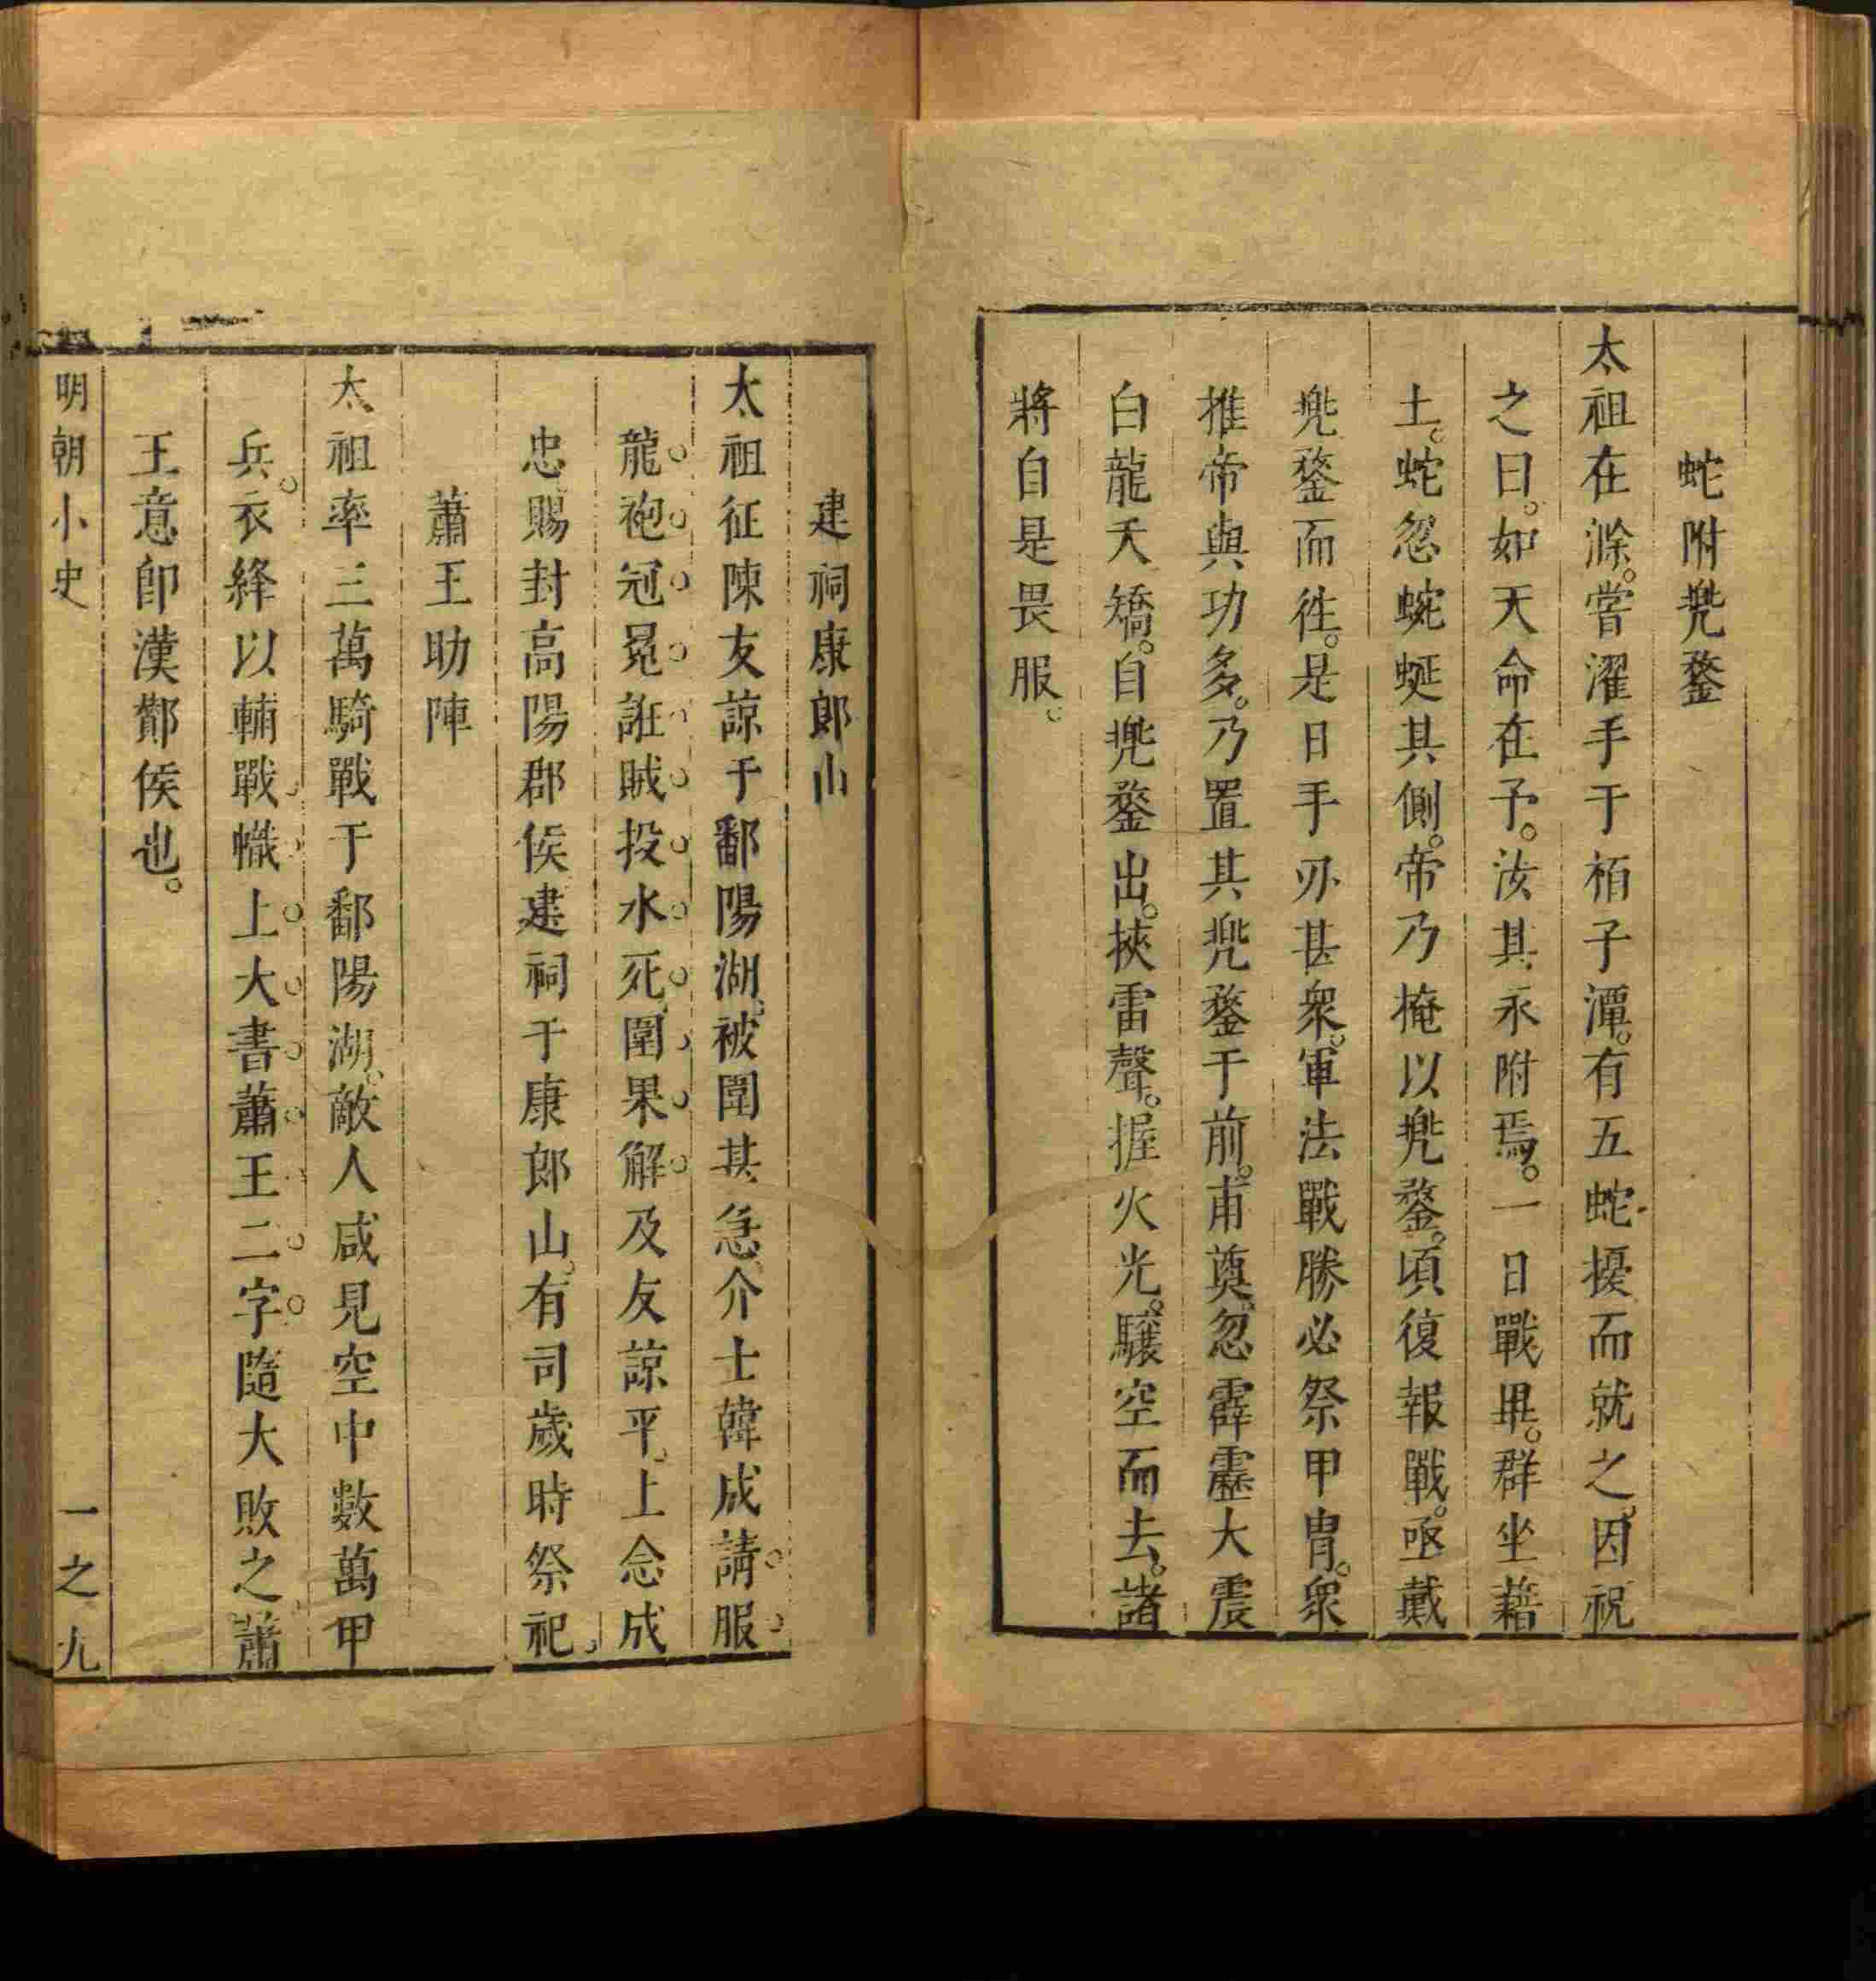 蛇附兠鍪
太祖在滁。嘗濯手于栢子潭。有五蛇擾而就之。因祝
之曰。如天命在予。汝其永附焉。一日戰畢。群坐藉
土。蛇忽蜿蜒其側。帝乃掩以兠鍪。頃復報戰。亟戴
兠鍪而徃。是日手刃甚衆。軍法戰勝必祭甲胄。衆
推帝與功多。乃置其兠鍪于前。甫奠。忽霹靂大震
白龍夭矯。自兠鍪出。挾雷聲。握火光。驤空而去。諸
將自是畏服。
建祠康郎山
太祖征陳友諒于鄱陽湖。被圍甚急。介士韓成請服
龍袍冠冕誑賊投水死。圍果解及友諒平。上念成
忠。賜封高陽郡侯建祠于康郎山。有司歲時祭祀
蕭王助陣
太祖率三萬騎戰于鄱陽湖。敵人咸見空中數萬甲
兵。衣絳以輔戰。幟上大書蕭王二字。隨大敗之。蕭
王意卽漢酇侯也。
明朝小史
一之九